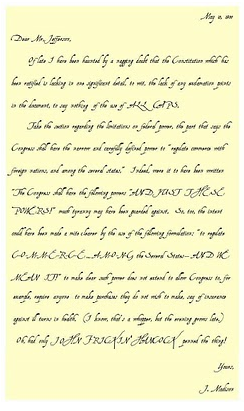 May 10, 1811
Dear Mr. Jefferson,
Of late I have been haunted by a nagging doubt that the Constitution which has
been ratified is lacking in one significant detail, to wit, the lack of any exclamation points
in the document, to say nothing of the use of ALL CAPS.
Take the section regarding the limitations on federal power, the part that says the
Congress shall have the narrow and carefully defined power to "regulate commerce with
foreign nations, and among the several states." Indeed, were it to have been written
"The Congress shall have the following powers "AND JUST THESE
POWERS!" much tyranny may have been guarded against. So, too, the intent
could have been made a mite clearer by the use of the following formulation; "to regulate
COMMERCE AMONG the Several States—AND WE
MEAN IT!" to make clear such power does not extend to allow Congress to, for
example, require anyone to make purchases they do not wish to make, say of insurance
against ill turns in health. (I know, that's a whopper, but the evening grows late.)
Oh, had only JOHN FRICKIN HANCOCK penned the thing!
Yours,
J. Madison